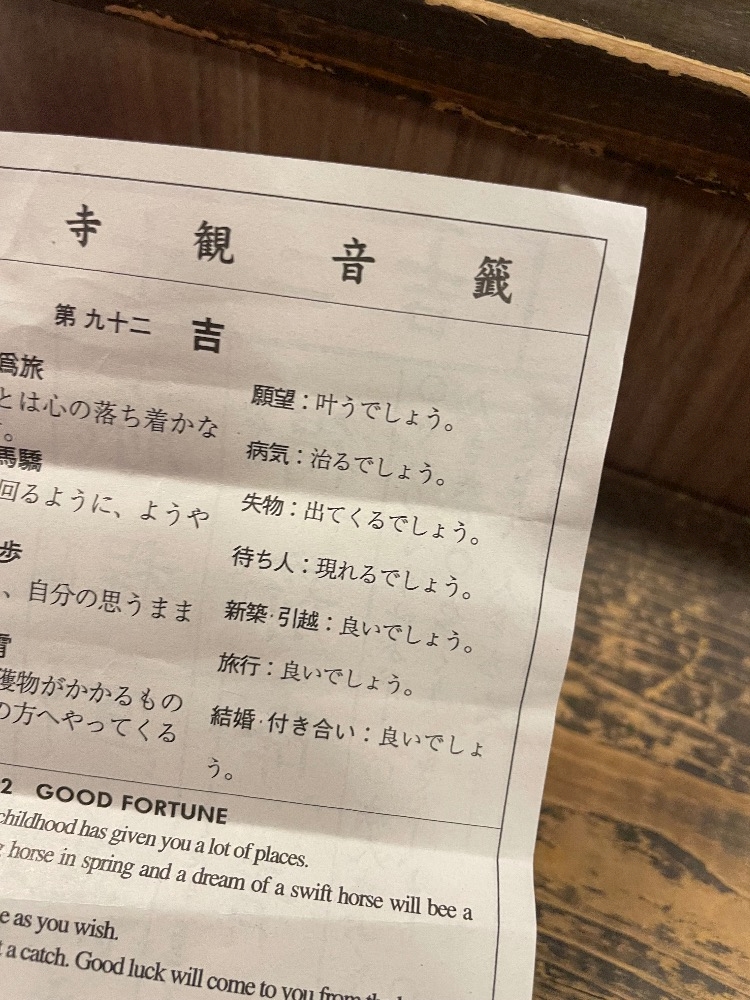 寺観音籤
第九十二 吉
爲旅
とは心の落ち着かな
。
馬驕
回るように、ようや
歩
、自分の思うまま
獲物がかかるもの
の方へやってくる
願望：叶うでしょう。
病気：治るでしょう。
失物：出てくるでしょう。
待ち人：現れるでしょう。
新築・引越：良いでしょう。
旅行：良いでしょう。
結婚・付き合い：良いでしょ
う。
2 GOOD FORTUNE
childhood has given you a lot of places.
horse in spring and a dream of a swift horse will bee a
e as you wish.
a catch. Good luck will come to you from